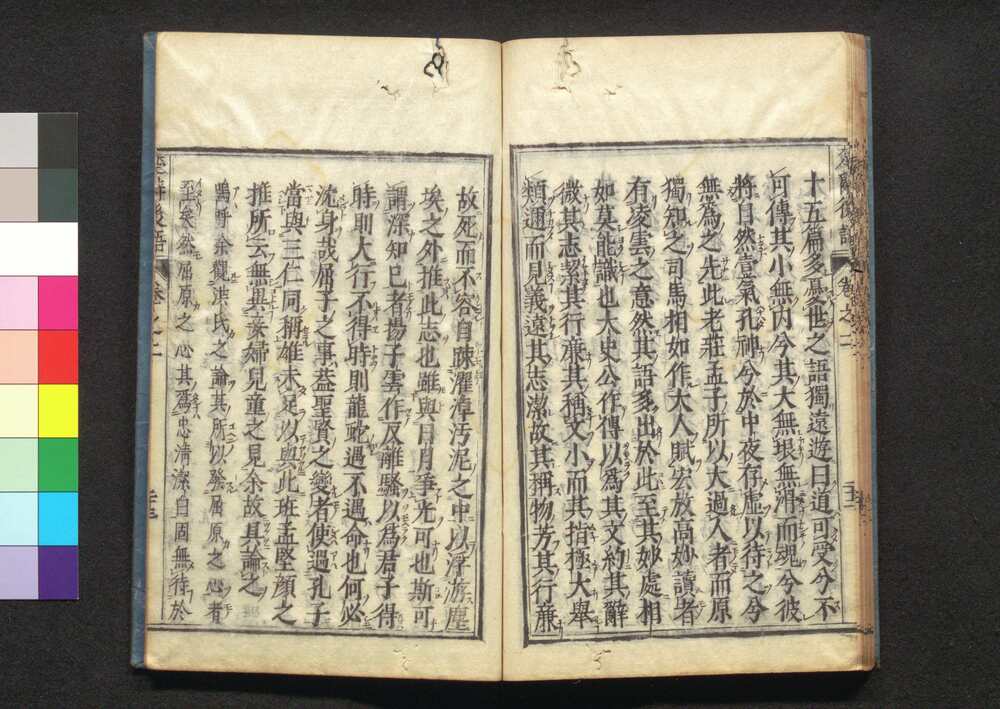 十五篇多憂世之語獨遠遊曰道可受兮不
可傳其小無內兮其大無垠無滑而魂兮彼
將自然壹氣孔神兮於中夜存虛以待之兮
無為之先此老莊孟子所以大過人者而原
獨知之司馬相如作大人賦宏放高妙讀者
有凌雲之意然其語多出於此至其妙處相
如莫能識也太史公作傳以為其文約其辭
微其志潔其行廉其稱文小而其指極大舉
類邇而見義遠其志潔故其稱物芳其行廉
故死而不容自踈濯淖汚泥之中以浮游塵
埃之外推此志也雖與日月爭光可也斯可
謂深知己者揚子雲作反離騷以為君子得
時則大行不得時則龍蛇遇不遇命也何必
沈身哉屈子之事蓋聖賢之變者使遇孔子
當與三仁同稱雄未足以與此班孟堅顏之
推所云無異妾婦兒童之見余故具論之
嗚呼余觀洪氏之論其所以發屈原之心者
至矣然屈原之心其為忠清潔白固無待於
楚辭後語 卷之二